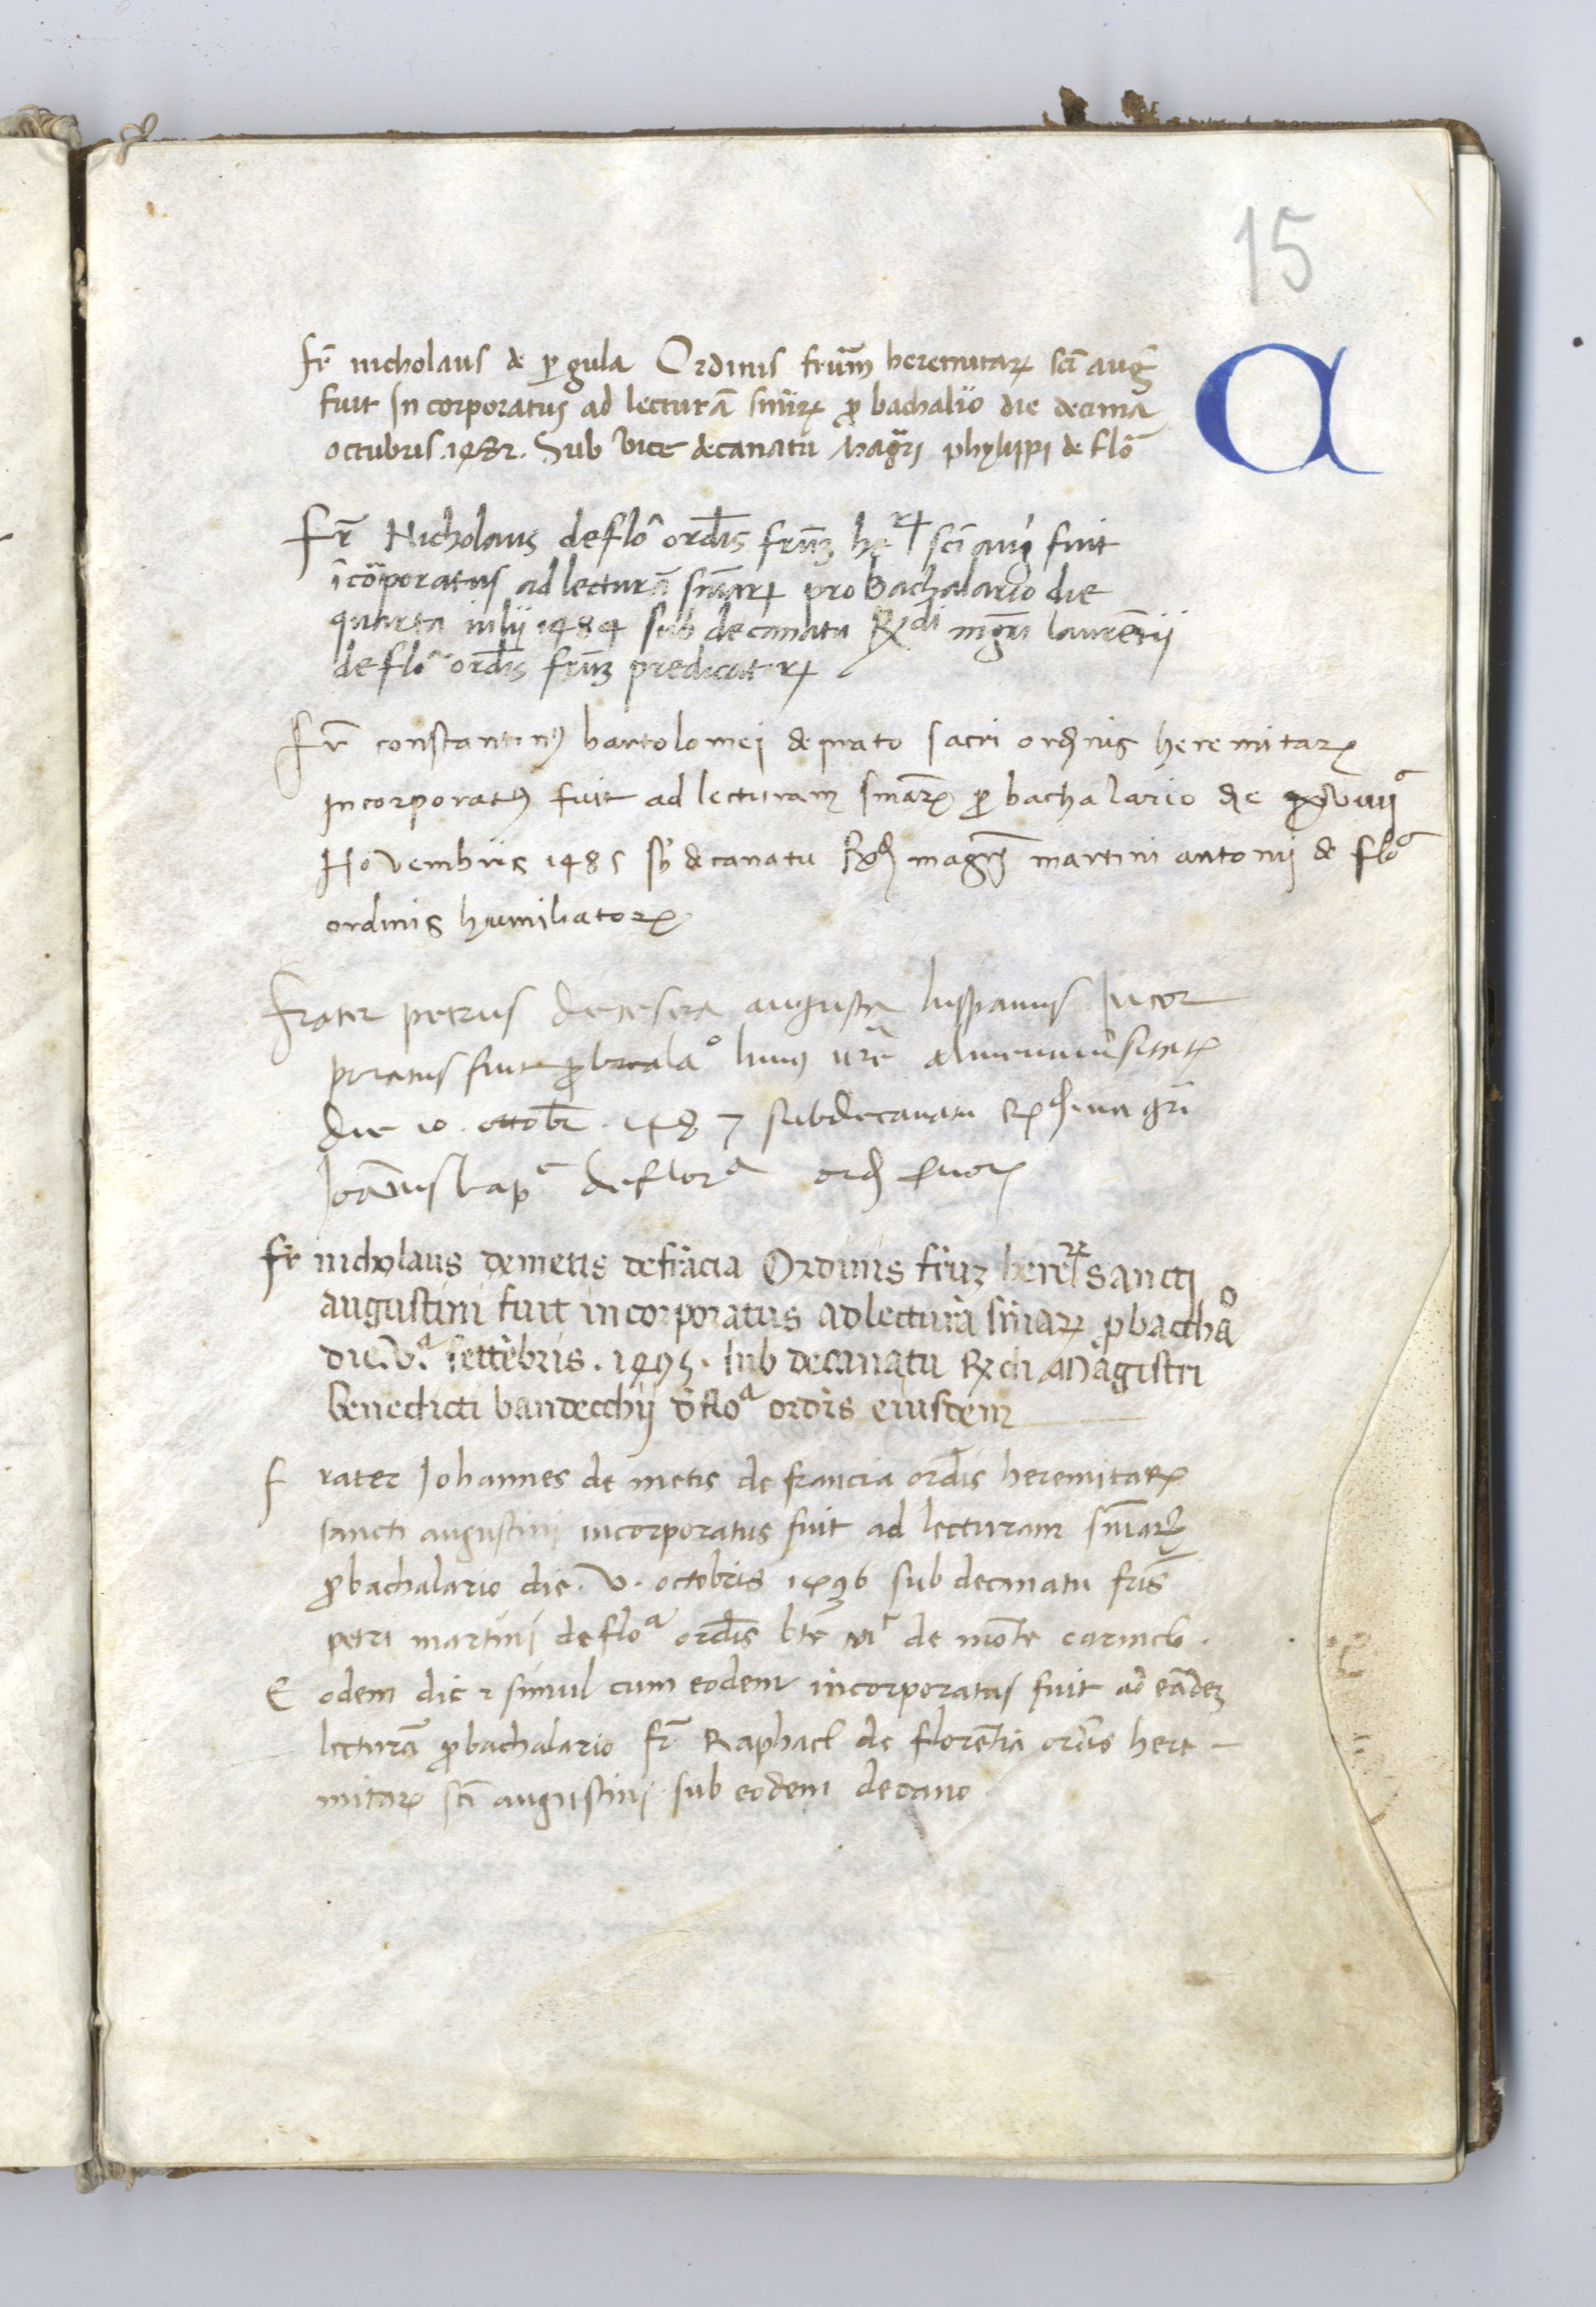 15
A
Fr̄ nicholaus de ꝑgula Ordinis frūm heremitaꝝ sc̄i auḡ
fuit Incorporatus ad lecturā sn̄iaꝝ ꝓ bachalario die decima
octubris .1482. Sub vice decanatu Magr̄i phylippi de flō
Fr̄ Nicholaus de flō ordīs frūꝫ heꝝ sc̄i auḡ fuit
īcorporatus ad lecturā sn̄iaꝝ pro bachalario die
quarta iulij 1484 sub decanatu Rdi mgr̄i laurētij
de flō ordīs frūꝫ predicatoꝝ
Fr̄ constantinꝰ bartolomei de prato sacri ordinis heremitaꝝ
Incorporatꝰ fuit ad lecturam sn̄iaꝝ ꝓ bachalario die
Novembris 1485 sb̄ decanatu Rd magr̄i martini antonij de floᵃ
ordinis humiliatoꝝ
Frater petrus augusta hispanus Incor
poratus fuit ꝓ almeuniūsitatꝭ
Die 10. ottobr̄. 1487 sub decanatu Rd magr̄i
de florᵃ ord
Fr̄ nicholaus de metis de frācia Ordinis frūꝫ hereꝝ sancti
augustini fuit incorporatus ad lecturā sn̄iaꝝ ꝓ bacchaᵒ
die .vᵃ. settēbris .1495. sub decanatu Rdi Magistri
benedicti bandecchij d̄ floᵃ ordīs eiusdem
Frater Johannes de metis de francia ordīs heremitaꝝ
sancti augustini incorporatus fuit ad lecturam sn̄iaꝝ
ꝓ bachalario die .v. octobris 1496 sub decanatu fr̄is
petri martini de floᵃ ordīs btē de mōte carmelo.
Eodem die ⁊ simul cum eodem incorporatus fuit ad eādeꝫ
lecturā ꝓ bachalario fr̄ Raphael de florētia ordīs here-
mitaꝝ sc̄i augustini sub eodem decano